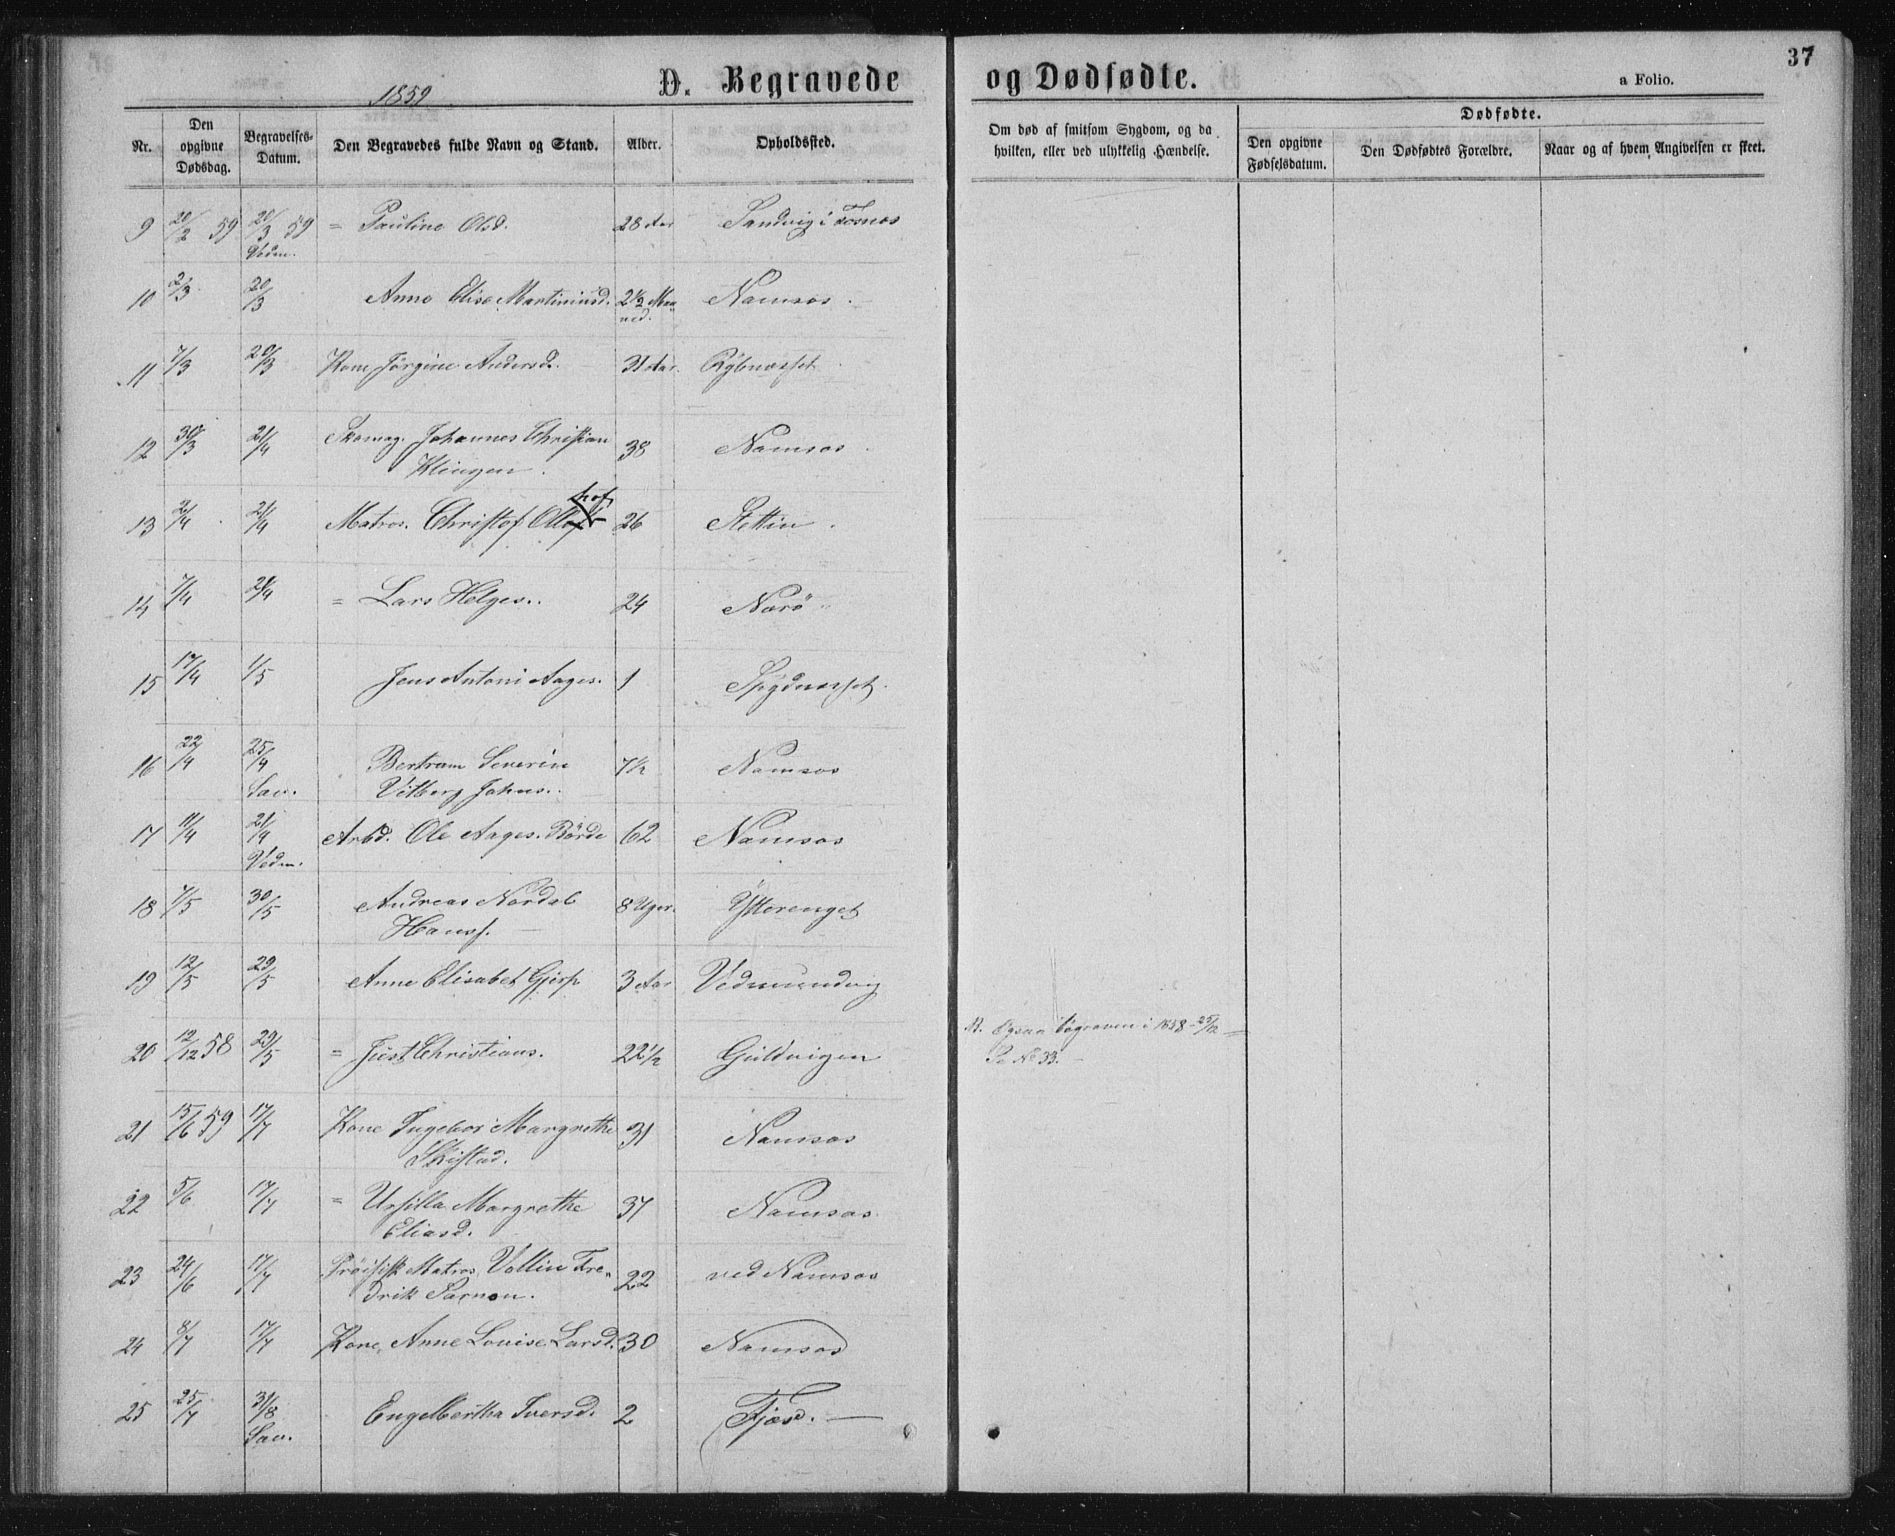 1859
D. Begravede og Dødfødte.
37
a Folio.
Nr.
Den opgivne Dødsdag.
Begravelses-Datum.
Den Begravedes fulde Navn og Stand.
Alder.
Opholdssted.
Om død af smitsom Sygdom, og da hvilken, eller ved ulykkelig Hændelse.
Dødfødte.
Den opgivne Fødselsdatum.
Den Dødfødtes Forældre.
Naar og af hvem Angivelsen er skeet.
9 20/2 59 20/3 59 = Pauline Olsd. 28 Aar Sandvig i Fosnæs
Vedm.
10 2/3 20/3 Anne Elise Martiniusd. 2 1/2 Maaned. Namsos
11 7/3 20/3 Kone Jörgine Andersd. 31 Aar
12 30/3 21/4 Skomag. Johannes Christian 38 Namsos
Klingen.
13 2/4 21/4 Matros. Christof 26 Stettin
14 7/4 21/4 = Lars Helges. 24 Nærö
15 17/4 1/5 Jens Antoni Aages. 1
16 22/4 25/4 Bertram Severin 7 1/2 Namsos
Sav. Vitberg Johns.
17 11/4 21/4 Arbd. Ole Aages. Börde 62 Namsos
Vedm.
18 7/5 30/5 Andreas Nordal 8 Uger. Ytterenget
Hanss.
19 12/5 29/5 Anne Elisabet 3 Aar
20 12/12 58 29/5 = Just Christians. 22 1/2 Guldvigen
i 1858 25/12
No 33.
21 15/6 59 17/7 Kone Ingebor Margrethe 31 Namsos
22 5/6 17/7 = Ursilla Margrethe 37 Namsos
Eliasd.
23 24/6 17/7 Pröisisk Matros, Vollin Fre- 22 ved Namsos
drik
24 8/7 17/7 Kone, Anne Louise Larsd. 30 Namsos
25 25/7 31/8 Engelbertha Iversd. 2
Sav.